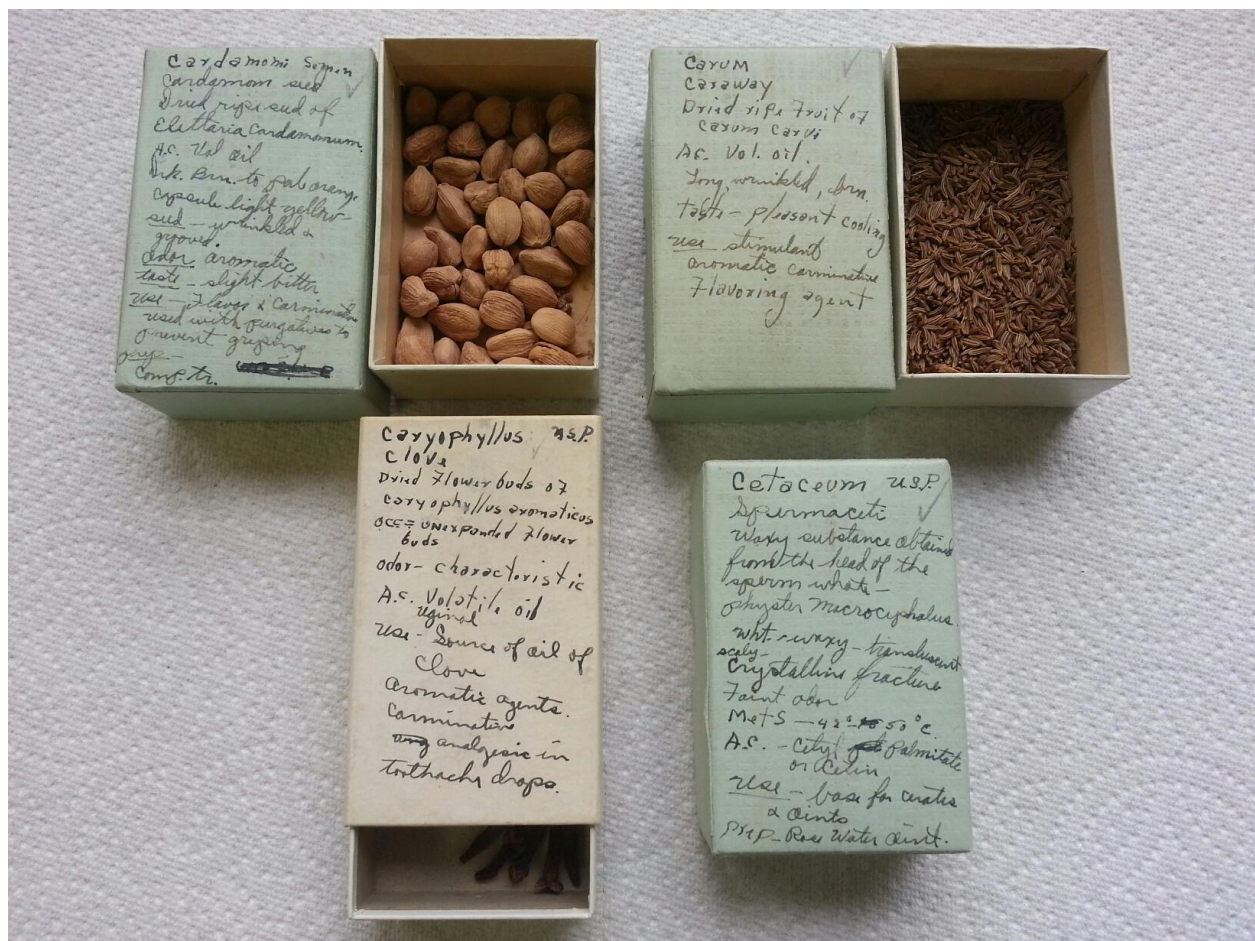 Cardamomi Semen
Cardamom seed
Dried ripe seed of
Elettaria Cardamomum.
A.C. Vol oil
Drk. Brn. to pale orange
capsule light yellow-
seed - wrinkled &
grooved.
odor aromatic
taste - slight bitter
use - Flavor & Carminative
used with purgatives to
prevent griping
prep-
Comp. tr.
Carum
Caraway
Dried ripe Fruit of
Carum Carvi
A.C. Vol. oil.
Long, wrinkled, brn.
taste - pleasant cooling
use - stimulant
aromatic carminative
Flavoring agent
Caryophyllus U.S.P.
Clove
Dried Flower buds of
Caryophyllus aromaticus
occ = unexpanded Flower
buds
odor - characteristic
A.C. Volatile oil
uginol
use - Source of oil of
Clove
aromatic agents.
Carminative
analgesic in
toothache drops.
Cetaceum U.S.P.
Spermaceti
Waxy substance obtained
from the head of the
sperm whale -
physter Macrocephalus.
wht - waxy - transluscent
scaly -
Crystalline fracture
Faint odor
Melts - 42° 50°C.
A.C. - Cetyl Palmitate
or Cetin
Use - base for cerates
& oints
Prep - Rose Water oint.